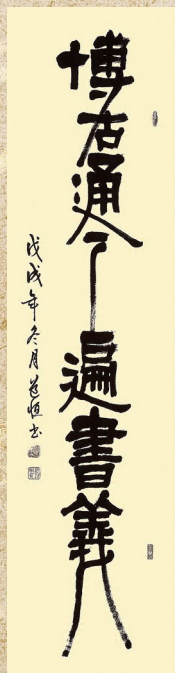 博古通今遍書義
戊戌年冬月道恒书